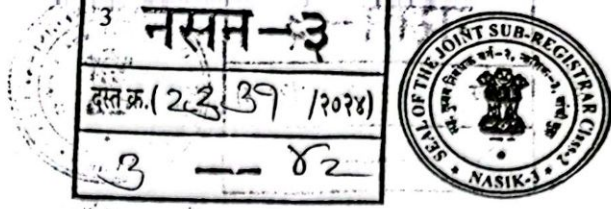 3 नसन-३
दस्त क्र.( 2339 /२०२४)
३ -- ४२
SEAL OF THE JOINT SUB-REGISTRAR Class-2
NASIK-3